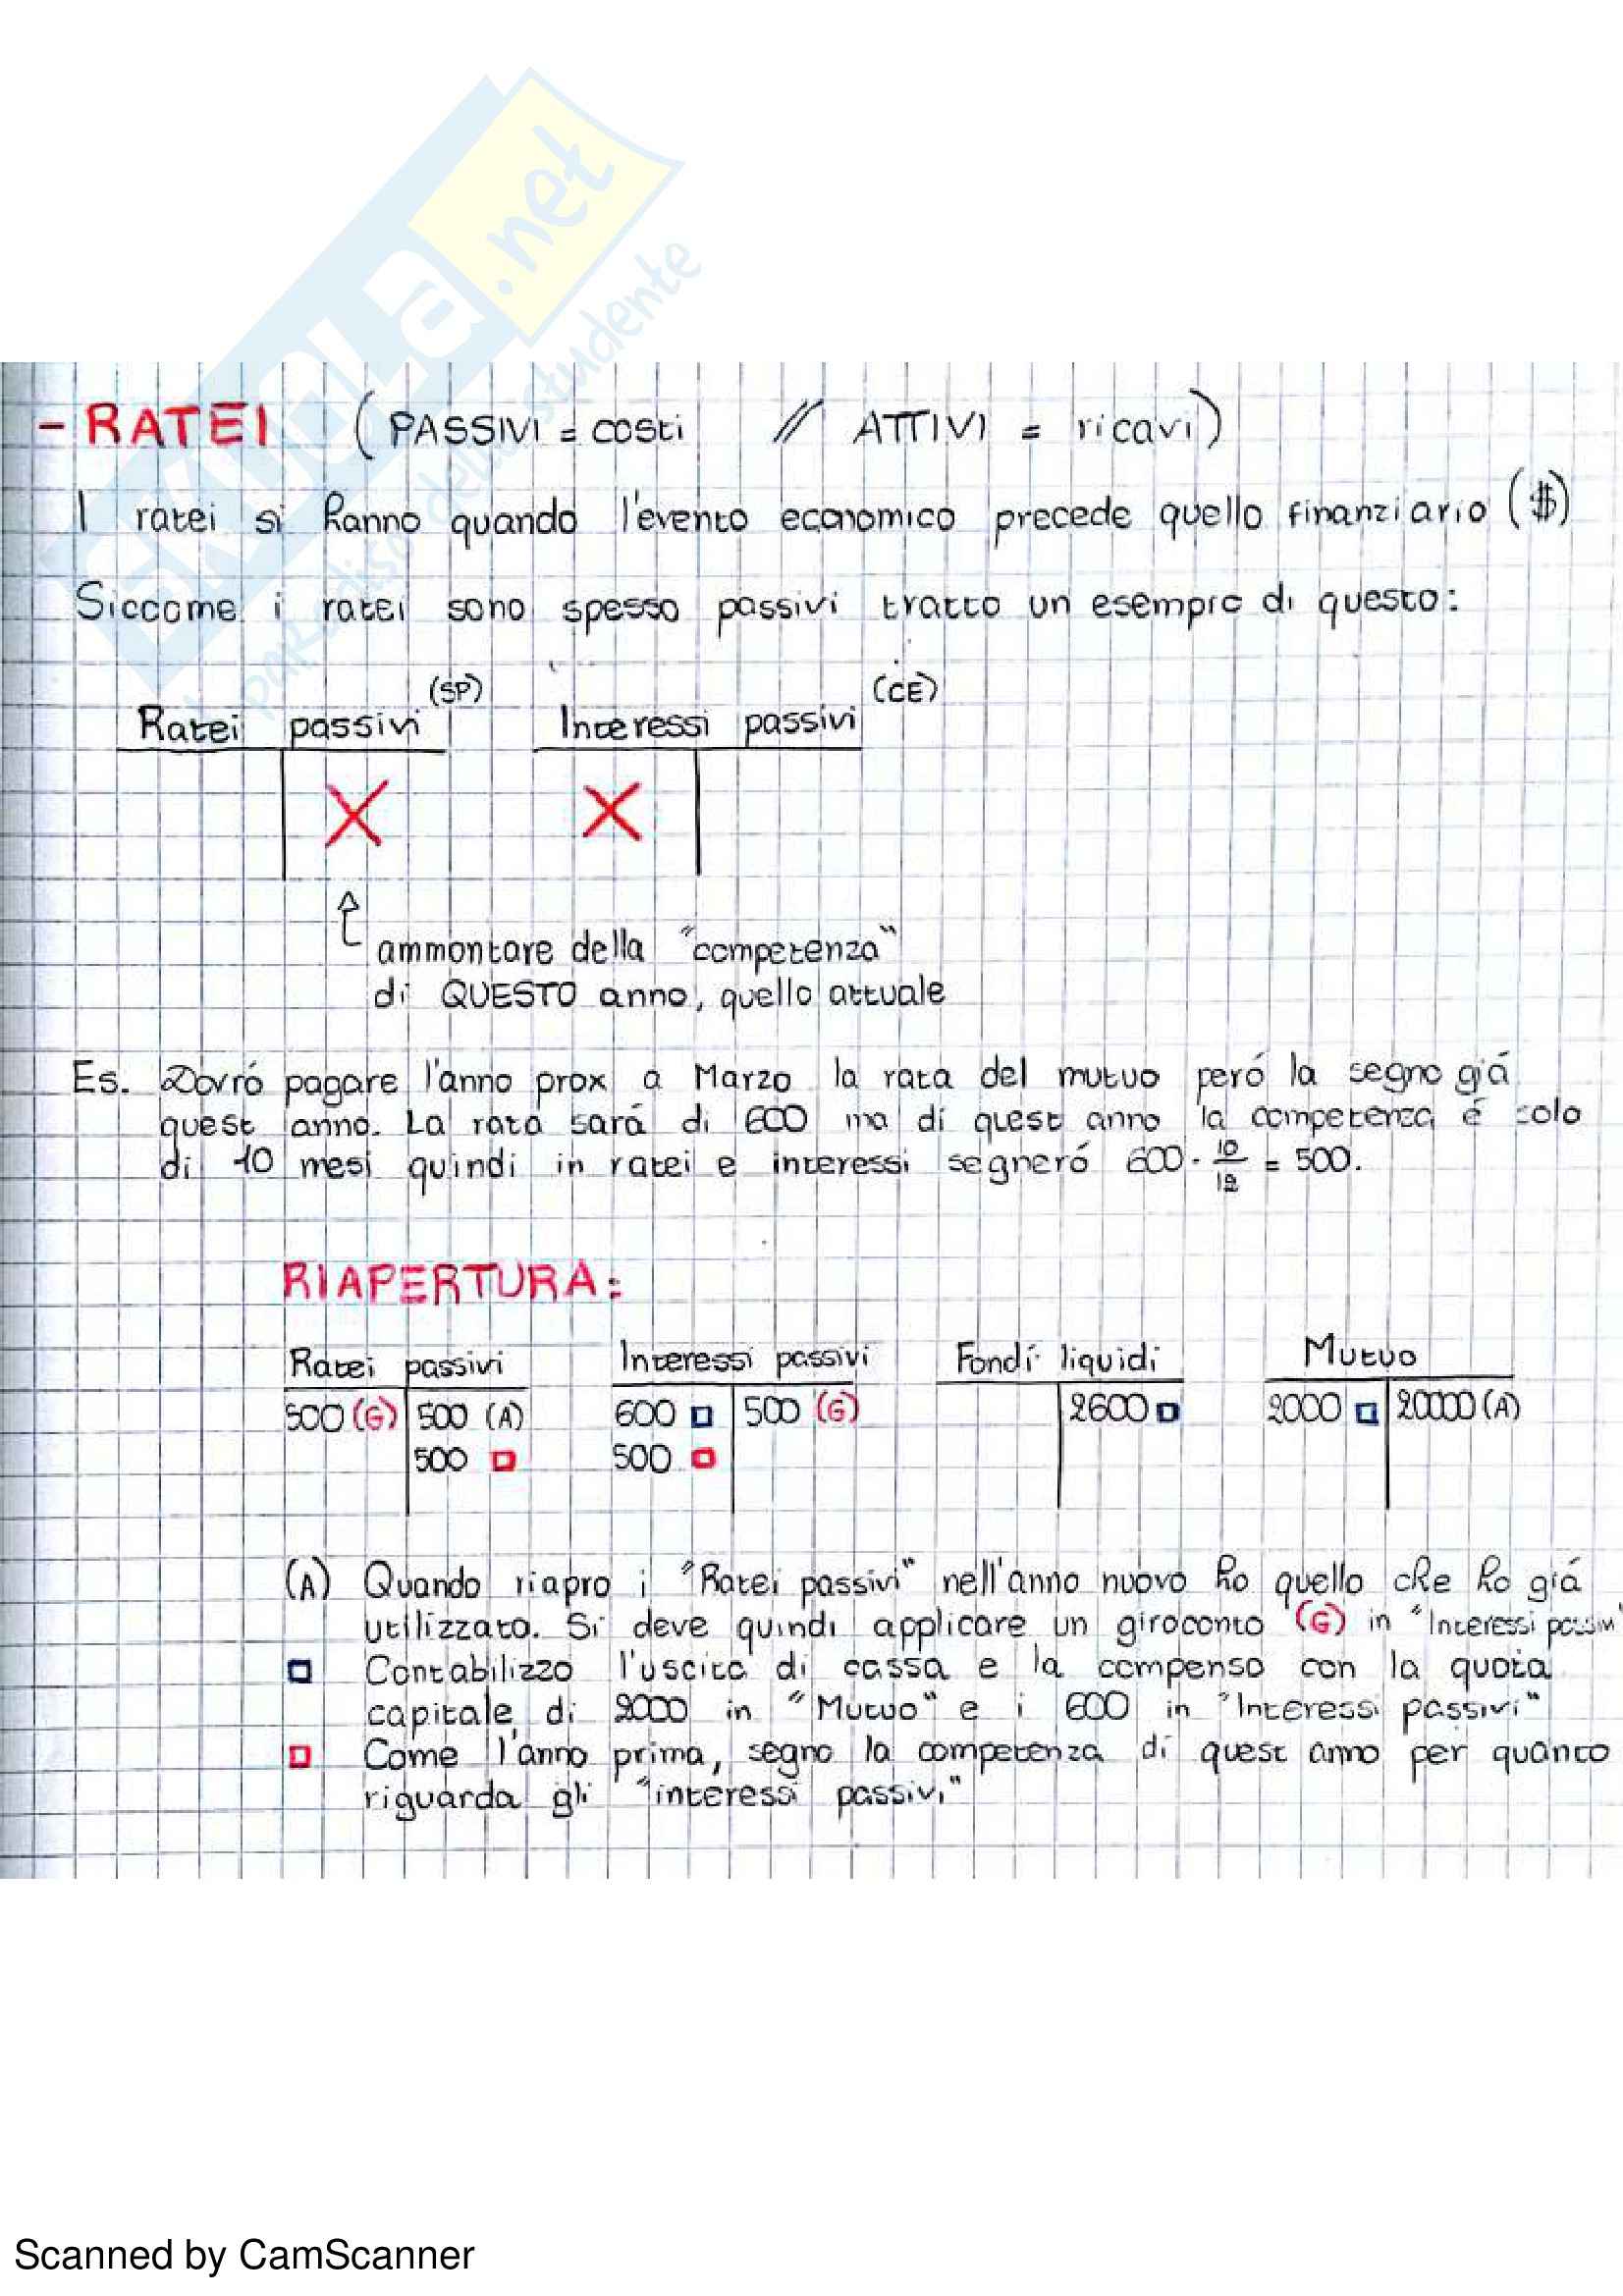 SKUOLA.net
il paradiso dello studente
- RATEI ( PASSIVI = costi // ATTIVI = ricavi )
I ratei si hanno quando l'evento economico precede quello finanziario ($)
Siccome i ratei sono spesso passivi tratto un esempio di questo:
Ratei passivi (SP) Interessi passivi (CE)
X X
ammontare della "competenza"
di QUESTO anno, quello attuale
Es. Dovró pagare l'anno prox a Marzo la rata del mutuo peró la segno giá
quest anno. La rata sará di 600 ma di quest anno la competenza é solo
di 10 mesi quindi in ratei e interessi segneró 600 · 10/12 = 500.
RIAPERTURA:
Ratei passivi Interessi passivi Fondi liquidi Mutuo
500 (G) 500 (A) 600 500 (G) 2600 2000 20000 (A)
500 500
(A) Quando riapro i "Ratei passivi" nell'anno nuovo ho quello che ho giá
utilizzato. Si deve quindi applicare un giroconto (G) in "Interessi passivi"
Contabilizzo l'uscita di cassa e la compenso con la quota
capitale di 2000 in "Mutuo" e i 600 in "Interessi passivi"
Come l'anno prima, segno la competenza di quest anno per quanto
riguarda gli "interessi passivi"
Scanned by CamScanner